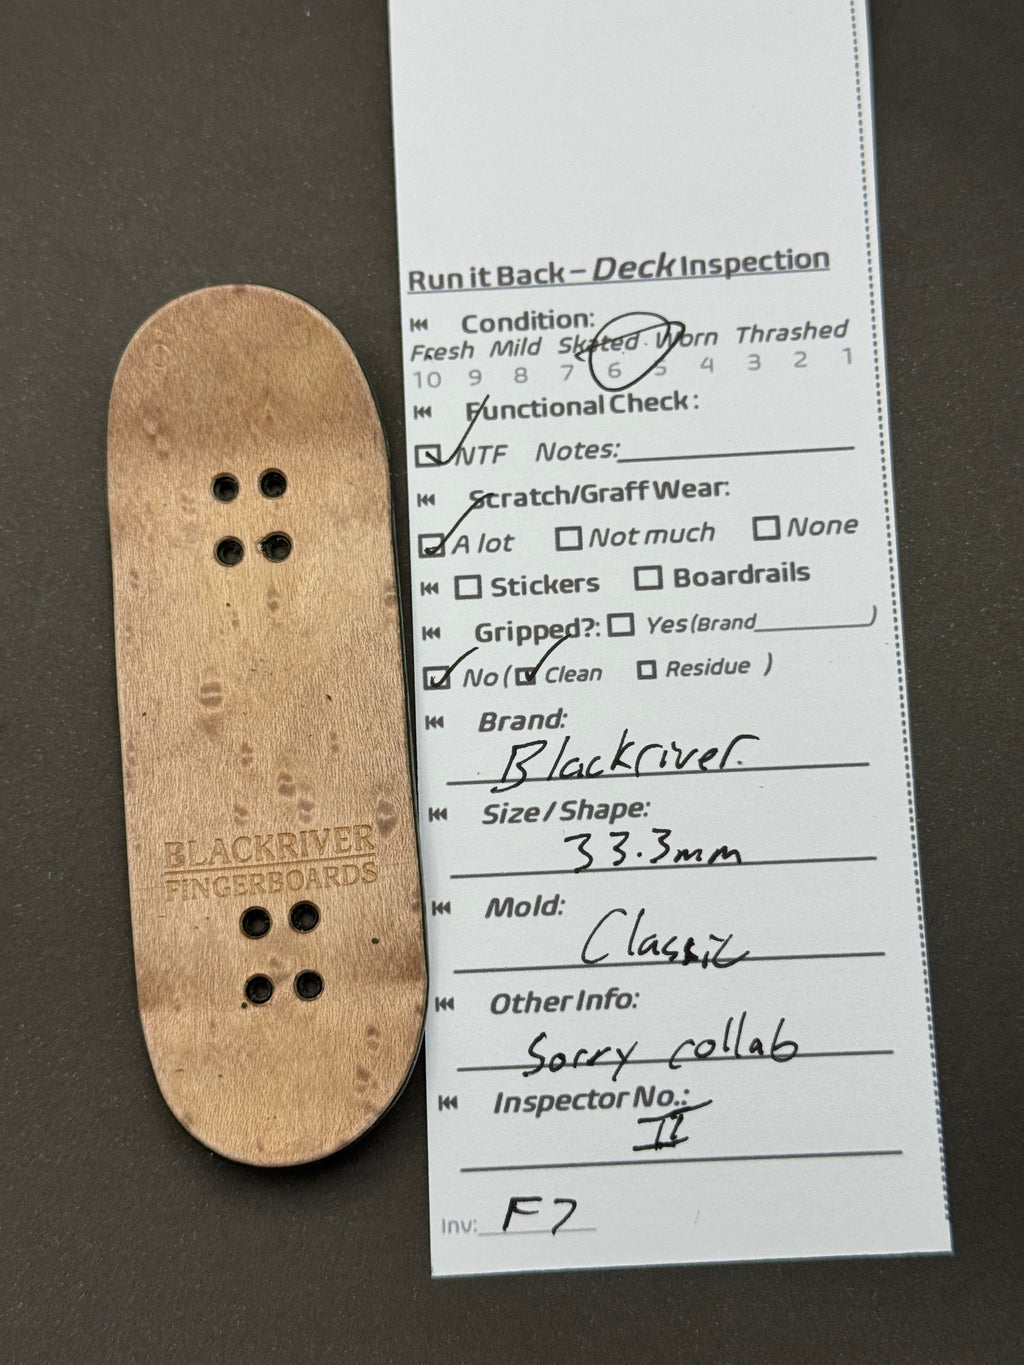 BLACKRIVER
FINGERBOARDS
Run it Back – Deck Inspection
Condition:
Fresh Mild Skated Worn Thrashed
10 9 8 7 6 5 4 3 2 1
Functional Check:
NTF Notes:
Scratch/Graff Wear:
A lot Not much None
Stickers Boardrails
Gripped?: Yes (Brand )
No ( Clean Residue )
Brand:
Blackriver.
Size / Shape:
33.3mm
Mold:
Classic
Other Info:
Sorry collab
Inspector No.:
Inv: F7